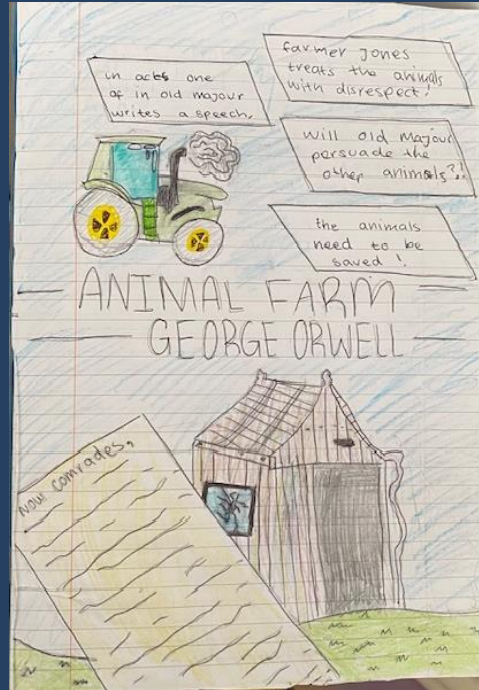 in acts one
of in old majour
writes a speech.
farmer Jones
treats the animals
with disrespect!
will old Majour
persuade the
other animals?!
the animals
need to be
saved !
ANIMAL FARM
GEORGE ORWELL
Now comrades,